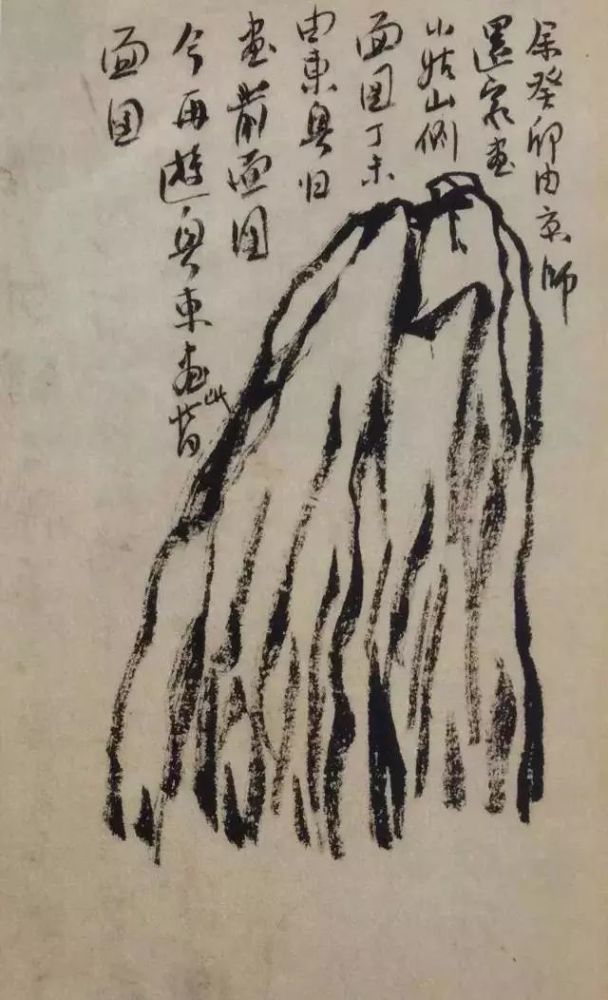 余癸卯由京師
還家畫
小姑山側
面圖丁未
由東粵归
畫前面圖
今再遊粵東畫此背
面圖